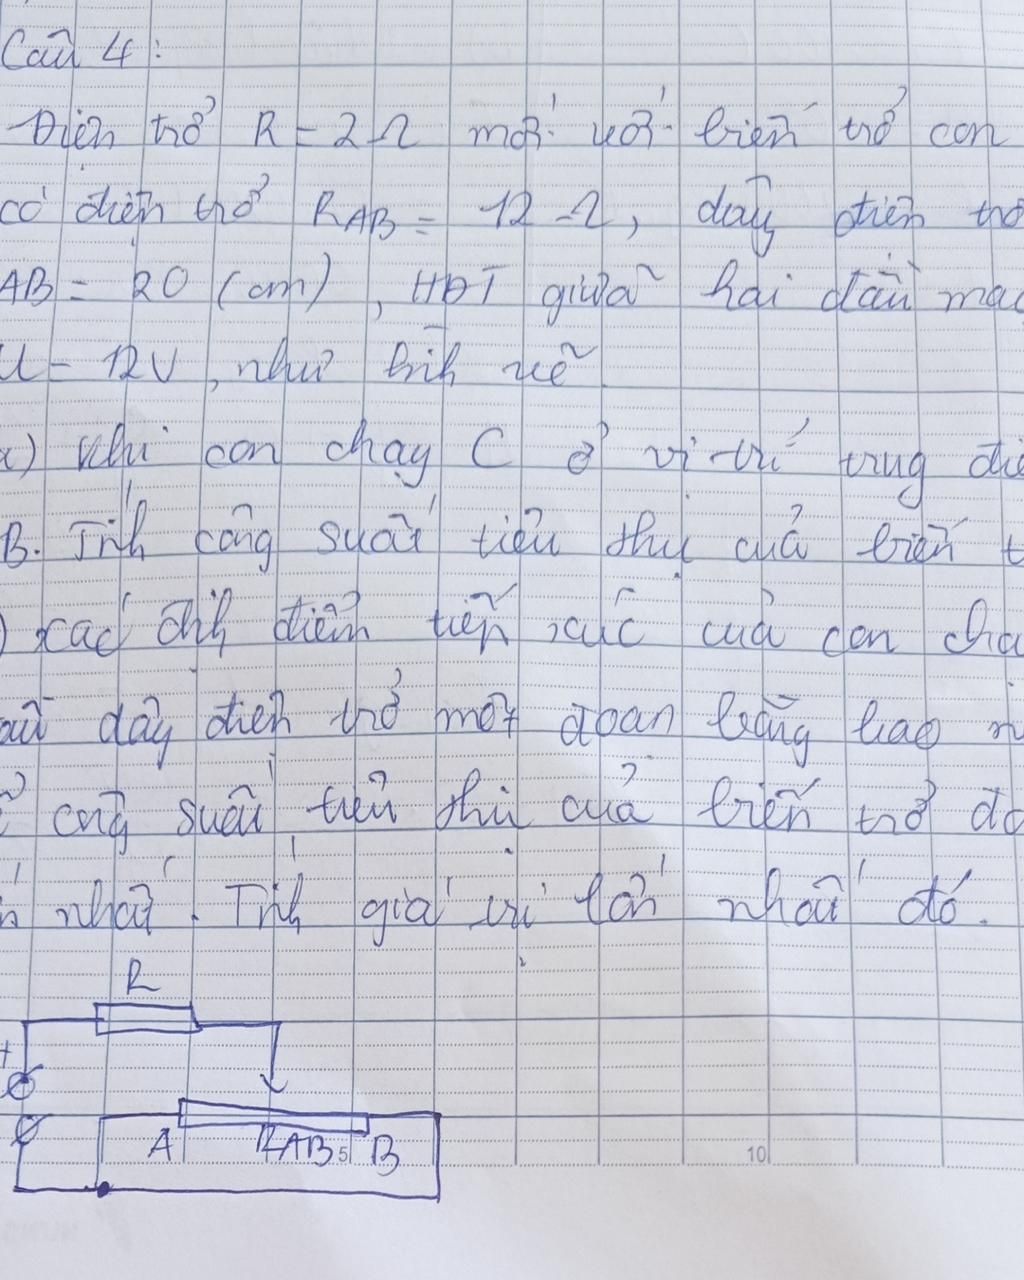 Câu 4:
Điện trở R = 2Ω mới với biến trở con
có điện trở RAB = 12 Ω, dây điện trở
AB = 20 (cm), HĐT giữa hai đầu mạc
U = 12V, như hình vẽ
a) Khi con chạy C ở vị trí trung điể
B. Tính công suất tiêu thụ của biến t
) xác định điểm tiếp xúc của con chạ
đầu dây điện trở một đoạn bằng bao n
ể công suất tiêu thụ của biến trở đạ
n nhất. Tính giá trị lớn nhất đó.
R
+
A RAB B
5 10